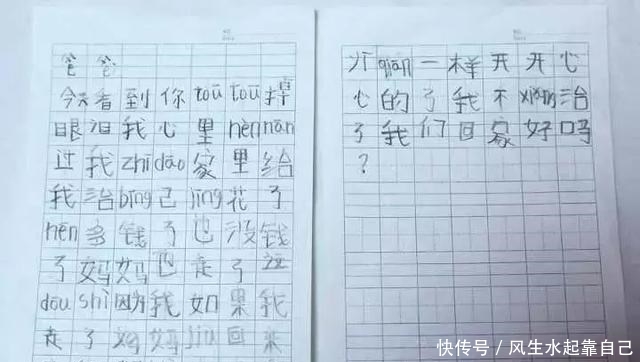 爸爸
今天看到你tōu tōu掉
眼泪我心里hěn nán
过我zhī dào家里给
我治bìng己jīng花了
hěn多钱了也没钱
了妈妈也走了这
dōu shì因为我如果我
走了妈妈jiù回来
qián一样开开心
心的了我不xiǎng治
了我们回家好吗
？
快传号 / 风生水起靠自己